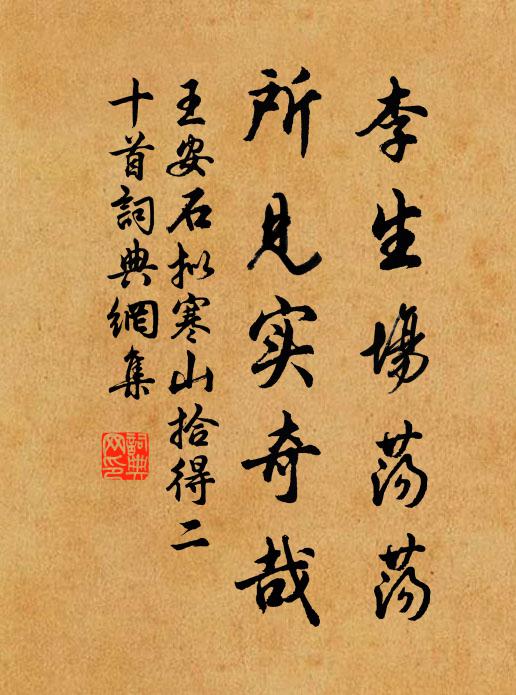 李生塲荡荡
所见实奇哉
王安石拟寒山拾得二
十首詞典網集
詞典网印